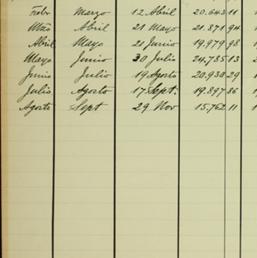 Febr Marzo 12 Abril 20.643 11
Mzo Abril 21 Mayo 21.871 94
Abril Mayo 21 Junio 19.979 98
Mayo Junio 30 Julio 24.735 13
Junio Julio 19 Agosto 20.930 29
Julio Agosto 17 Sept. 19.897 86
Agosto Sept 29 Nov 15.762 11